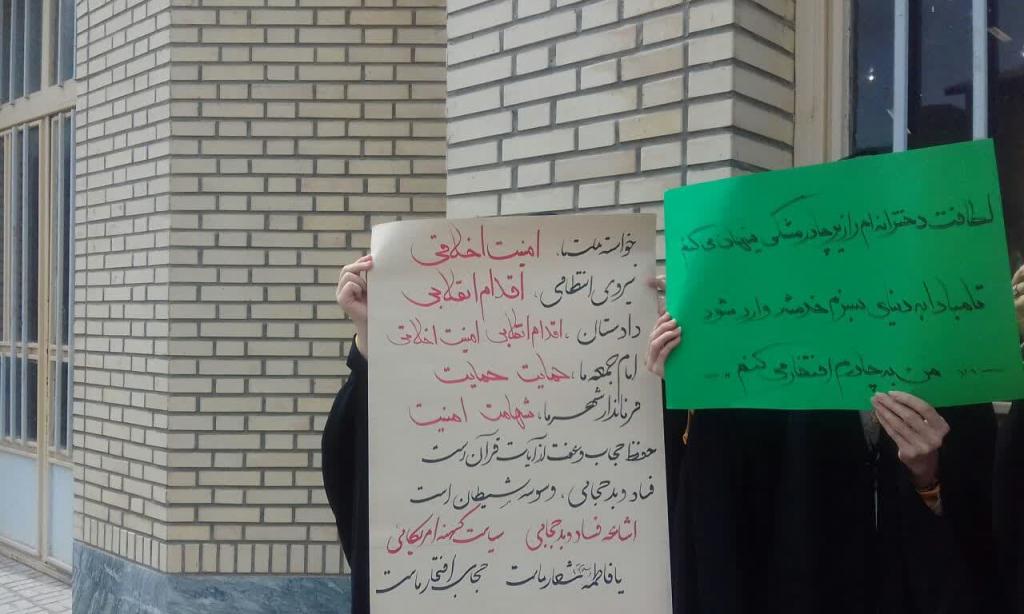 خواسته ملت ما، امنیت اخلاقی
نیروی انتظامی، اقدام انقلابی
دادستان، اقدام انقلابی امنیت اخلاقی
امام جمعه ما، حمایت حمایت
فرماندار شهر ما، شهامت امنیت
حفظ حجاب و عفت از آیات قرآن است
فساد و بدحجابی، وسوسه شیطان است
اشاعه فساد و بدحجابی سیاست کهنه امریکائی
یا فاطمه شعار ماست حجاب افتخار ماست
لطافت دخترانه ام را زیر چادر مشکی پنهان می کنم
تا مبادا به دنیای سبزم خدشه وارد شود
من به چادرم افتخار می کنم...